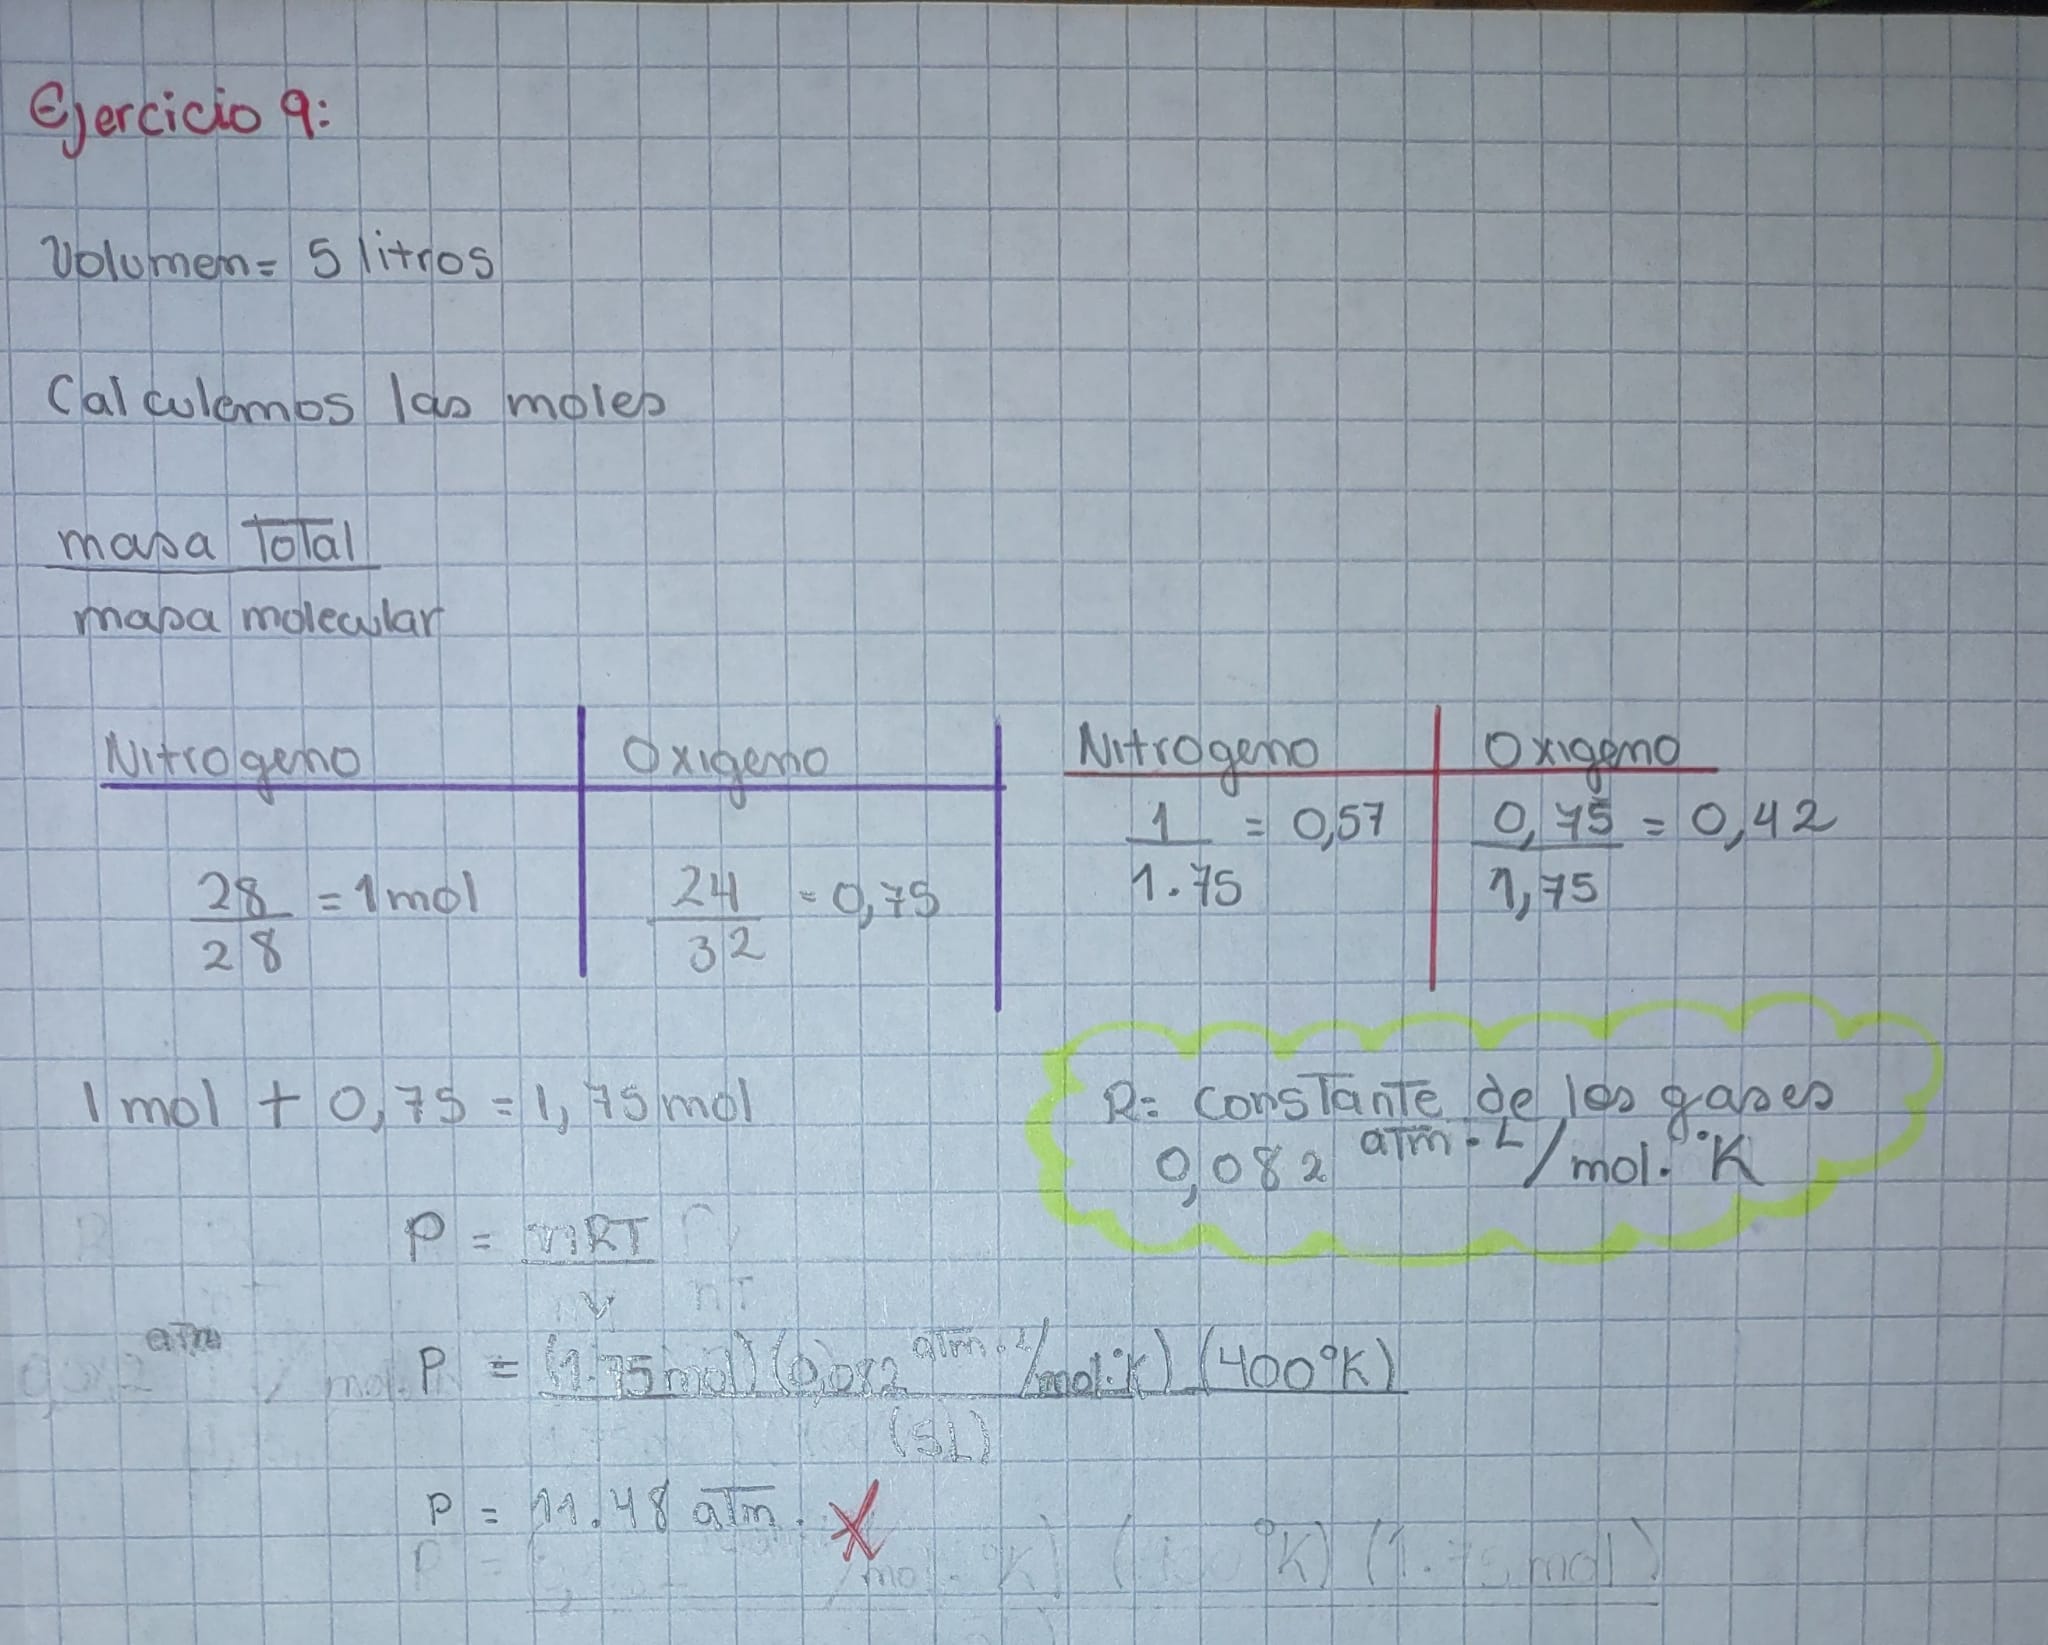 Ejercicio 9:
Volumen = 5 litros
Calculemos las moles
masa Total
masa molecular
Nitrogeno Oxigeno
28 = 1 mol 24 = 0,75
28 32
Nitrogeno Oxigeno
1 = 0,57 0,75 = 0,42
1.75 1,75
1 mol + 0,75 = 1,75 mol
R= constante de los gases
0,082 atm.L/mol.°K
P = nRT
V
P = (1.75 mol) (0,082 atm.L/mol.°K) (400°K)
(5L)
P = 11.48 atm. X